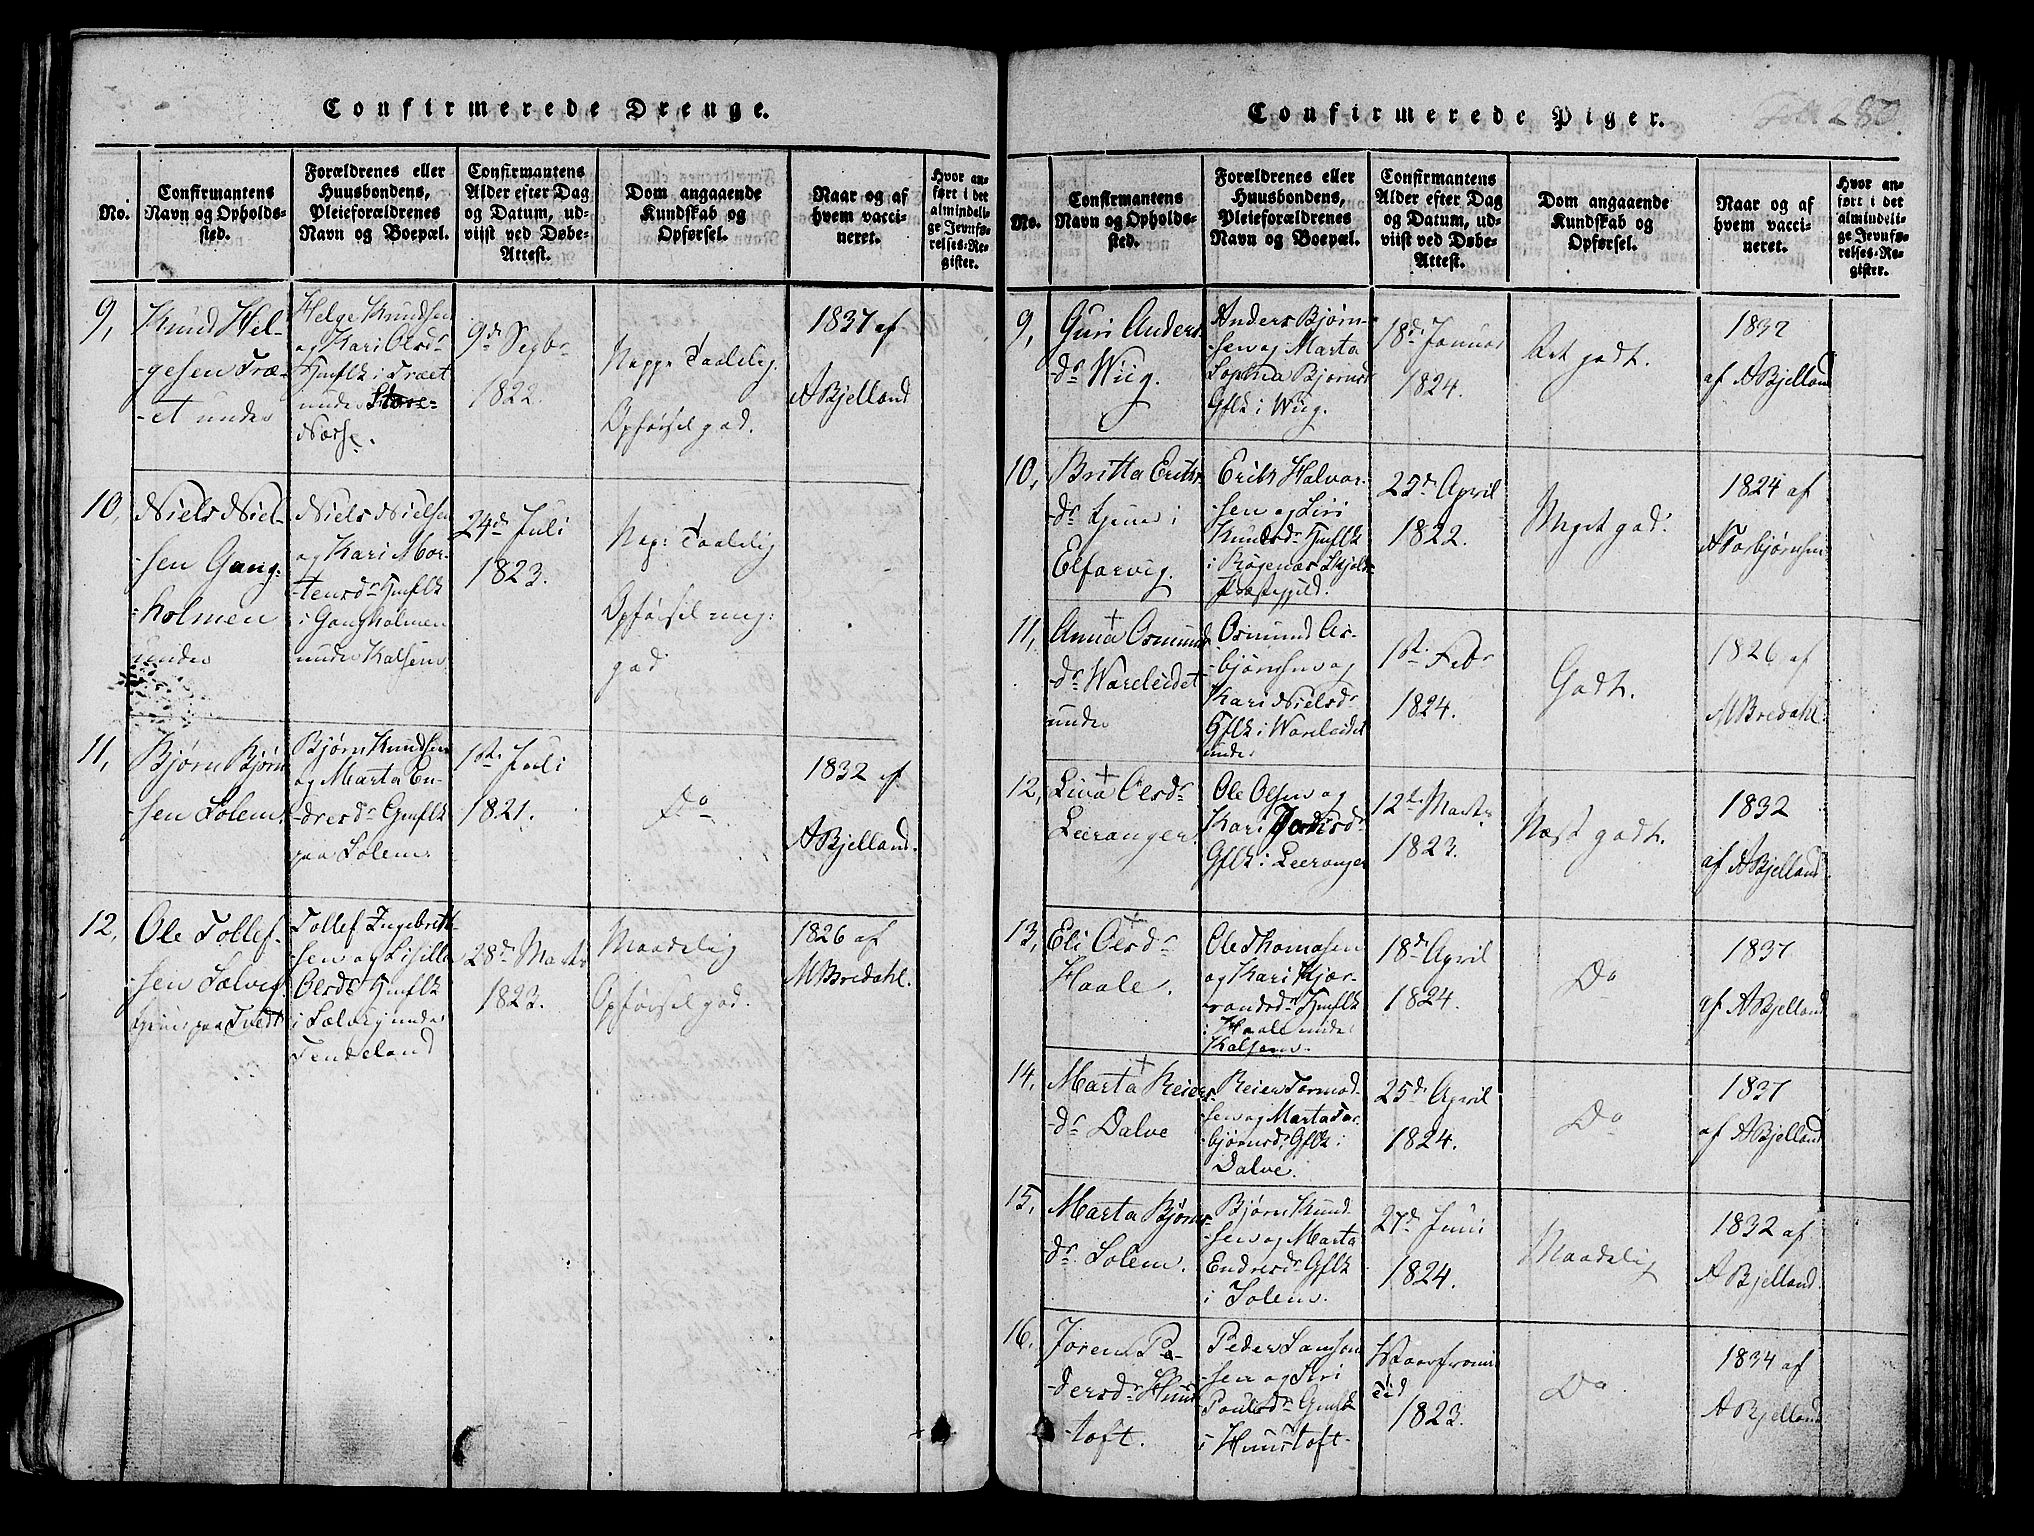 Confirmerede Drenge.
No.
Confirmantens
Navn og Opholds-
sted.
Forældrenes eller
Huusbondens,
Pleieforældrenes
Navn og Boepæl.
Confirmantens
Alder efter Dag
og Datum, ud-
viist ved Døbe-
Attest.
Dom angaaende
Kundskab og
Opførsel.
Naar og af
hvem vacci-
neret.
Hvor an-
ført i det
almindeli-
ge Jevnfø-
relses-Re-
gister.
9,
Knud Hel-
gesen Træ-
-et under
Helge Knudsen
og Kari Olsdr
Hmflk i Træet
under Store-
Norse.
9de Segbr
1822.
Neppe Taalelig.
Opførsel god.
1837 af
A Bjelland
10,
Niels Niel-
sen Gang-
holmen
under
Niels Nielsen
og Kari Mor-
tensdr Hmflk
i Gangholmen
under Kalsem
24de Juli
1823.
Nep: Taalelig
Opførsel meg:
god
11,
Bjørn Bjørn
sen Solem.
Bjørn Knudsen
og Marta En-
dresdr Gmflk
paa Solem.
1ste Juli
1821.
Do
1832 af
A Bjelland.
12,
Ole Tollef-
sen Sælvig
tjener paa Tvedt
Tollef Ingebrett
sen og Lisilla
Olsdr Hmflk
i Sælvig under
Tendeland
28de Marts
1823.
Maadelig
Opførsel god.
1826 af
M Bredahl.
Confirmerede Piger.
Foll 280.
No.
Confirmantens
Navn og Opholds-
sted.
Forældrenes eller
Huusbondens,
Pleieforældrenes
Navn og Boepæl.
Confirmantens
Alder efter Dag
og Datum, ud-
viist ved Døbe-
Attest.
Dom angaaende
Kundskab og
Opførsel.
Naar og af
hvem vacci-
neret.
Hvor an-
ført i det
almindeli-
ge Jevnfø-
relses-Re-
gister.
9,
Guri Anders
dr Wiig.
Anders Bjørn-
sen og Marta
Sophia Bjørnsd
Gflk i Wiig.
18de Januar
1824.
godt.
1837
af A Bjelland
10,
Britta Eriks
dr tjener i
Elfarvig.
Erik Halvor
sen og Siri
Knudsdr Hmflk
i Røgenæs Skjold
Præstegjeld.
25de April
1822.
Meget god.
1824 af
A Torbjørnsen
11,
Anna Osmunds
dr Wareleidet
under
Osmund As-
bjørnsen og
Kari Nielsdr
Gflk i Wareleidet
under
1ste Febr
1824.
Godt.
1826 af
M Bredahl.
12,
Lina Olsdr
Leeranger.
Ole Olsen og
Kari
Gflk i Leeranger
12te Marts
1823.
Næst godt.
1832
af A Bjelland.
13,
Eli Olsdr
Haale.
Ole Thomasen
og Kari Kjær-
randsdr Hmflk
i Haale under
Kalsem.
18de April
1824.
Do
1837
af A Bjelland
14,
Marta Reiers
dr Dalve
Reier Tormod
sen og Marta Tor
bjørnsdr Gflk i
Dalve.
25de April
1824.
Do
1837
af A Bjelland
15,
Marta Bjørns-
dr Solem.
Bjørn Knud
sen og Marta
Endresdr Gflk
i Solem.
27de Juni
1824.
Maadelig
1832 af
A Bjelland.
16.
Joren Pe-
dersdr Huus
toft.
Peder Samson
sen og Siri
Poulsdr Gmflk
i Huustoft.
Tid
1823.
Do
1834 af
A Bjelland